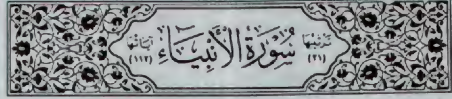 ترتيبها (٢١) سُورَةُ الْأَنْبِيَاءِ آياتها (١١٢)